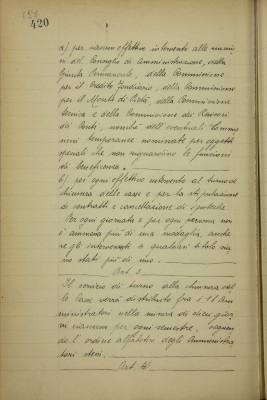 420
a) per ciascun effettivo intervento alle riunio
ni del Consiglio di Amministrazione, della
Giunta Permanente, della Commissione
per il Credito Fondiario, della Commissione
per il Monte di Pietà, della Commissione
tecnica e della Commissione dei Revisori
dei Conti, nonchè dell'eventuali Commis
sioni temporanee nominate per oggetti
speciali che non riguardino le funzioni
di beneficenza.
b) per ogni effettivo intervento al turno di
chiusura delle casse e per la stipulazione
di contratti e cancellazione di ipoteche.
Per ogni giornata e per ogni persona non
è ammessa più di una medaglia, anche
se gli interventi a qualsiasi titolo sia
no stati più di uno.
Art. 3
Il servizio di turno alla chiusura del
le Casse verrà distribuito fra i 18 Am
ministratori nella misura di dieci gior
ni ciascuno per ogni semestre, seguen
do l'ordine alfabetico degli Amministra
tori stessi.
Art. 4°